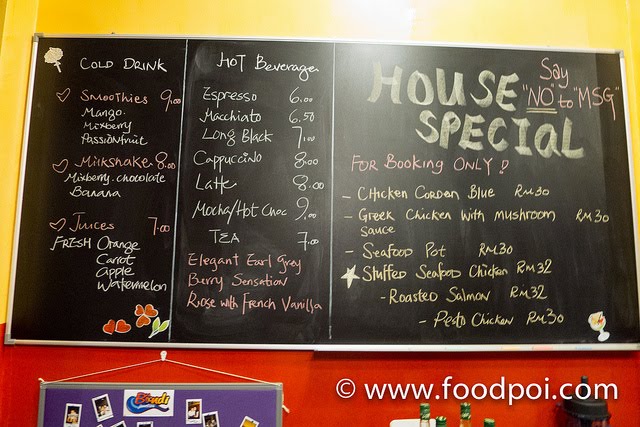 COLD DRINK
Smoothies 9.00
Mango.
Mixberry
Passionfruit
Milkshake 8.00
Mixberry. chocolate
Banana
Juices 7.00
FRESH Orange
Carrot
Apple
Watermelon
HOT Beverages
Espresso 6.00
Macchiato 6.50
Long Black 7.00
Cappuccino 8.00
Latte 8.00
Mocha/Hot Choc 9.00
TEA 7.00
Elegant Earl Grey
Berry Sensation
Rose with French Vanilla
HOUSE
SPECIAL
Say
"NO" to "MSG"
FOR Booking ONLY!
- Chicken Corden Blue RM30
- Greek Chicken with mushroom RM30
sauce
- Seafood Pot RM30
Stuffed Seafood Chicken RM32
- Roasted Salmon RM32
- Pesto Chicken RM30
© www.foodpoi.com